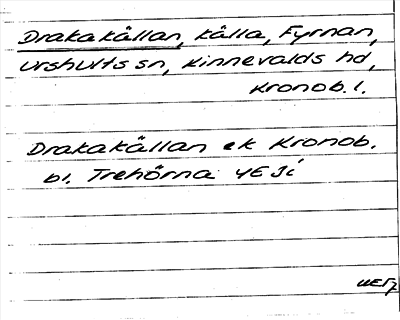 Drakakällan, källa, Fyrnan,
Urshults sn, Kinnevalds hd,
Kronob. l.
Drakakällan ek Kronob.
bl. Trehörna 4E 3i